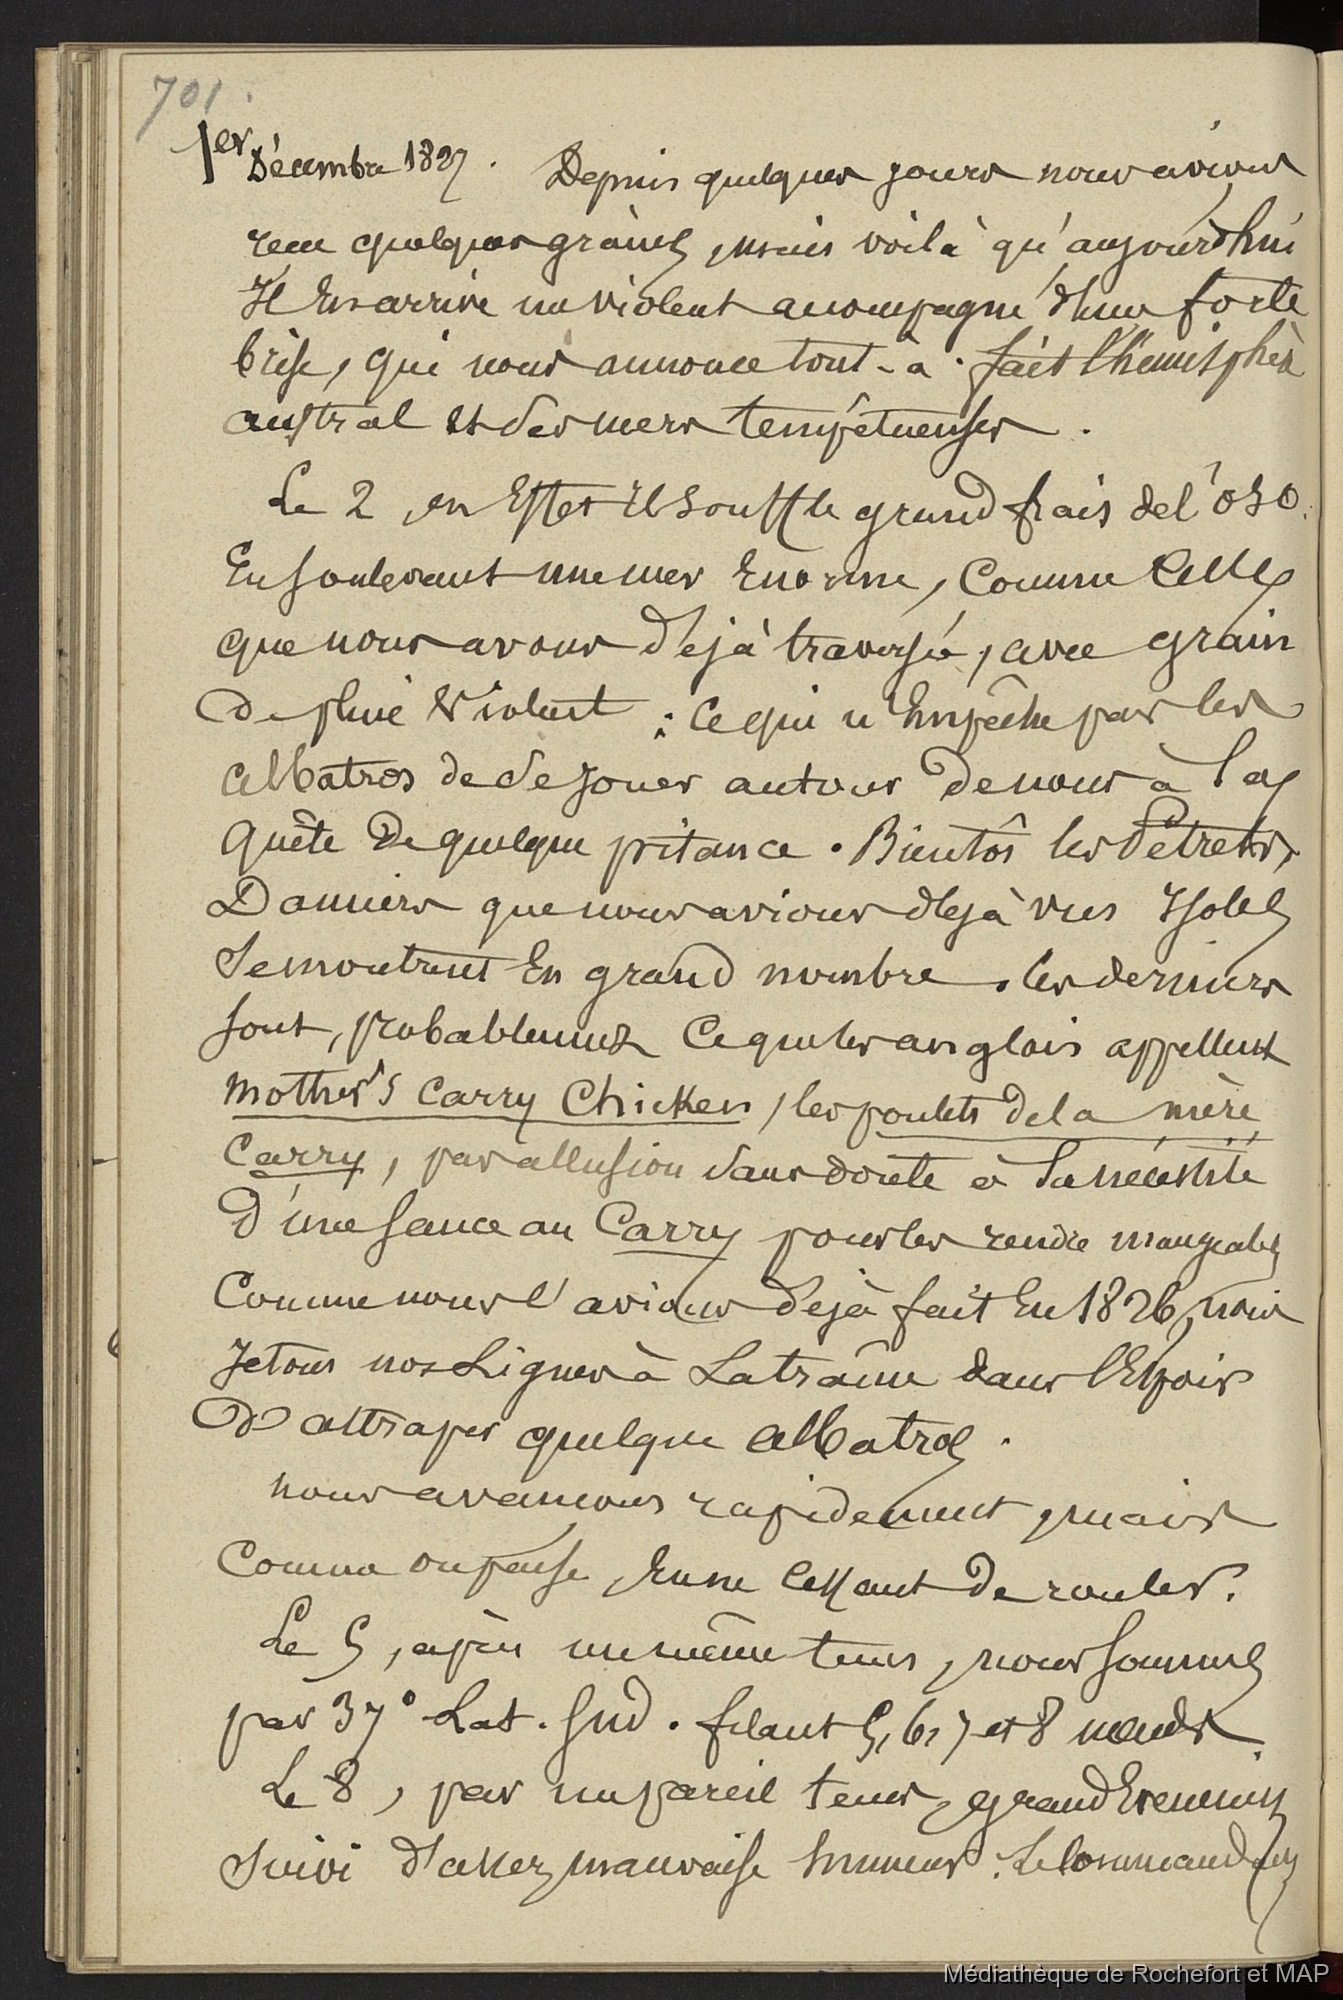 701.
1er Décembre 1827. Depuis quelques jours nous avions
recu quelques grains, mais voilà qu'aujourd'hui
Il En arrive un violent acompagné d'une forte
brise, qui nous annonce tout-à-fait l'hémisphère
austral et des mers tempétueuses.
Le 2, en Effet Il souffle grand frais de l'OSO.
En soulevant une mer Enorme, comme Celle
que nous avons déjà traversée, avec grain
De pluie Violent ; ce qui n'Empêche pas les
albatros de se Jouer autour de nous à la
quête De quelque pitance. Bientôt les Pétrels,
Damiers que nous avions déjà vus Isolés
Se montrent En grand nombre. les derniers
sont, probablement Ce que les anglois appellent
Mother's Carry Chicken, les poulets de la mère
Carry, par allusion sans doute à la nécessité
D'une sauce au Carry pour les rendre mangeables
Comme nous l'avions déjà fait En 1826, nous
Jetons nos Lignes à La traîne dans l'Espoir
D'attraper quelque albatros.
nous avancions rapidement, mais
Comme on pense, En ne Cessant De rouler.
Le 5, après un même tems, nous sommes
par 37° Lat. Sud. filant 5, 6, 7 et 8 nœuds.
Le 8, par un pareil tems, grand Evenement
Suivi d'assez mauvaise humeur. Le Commandant